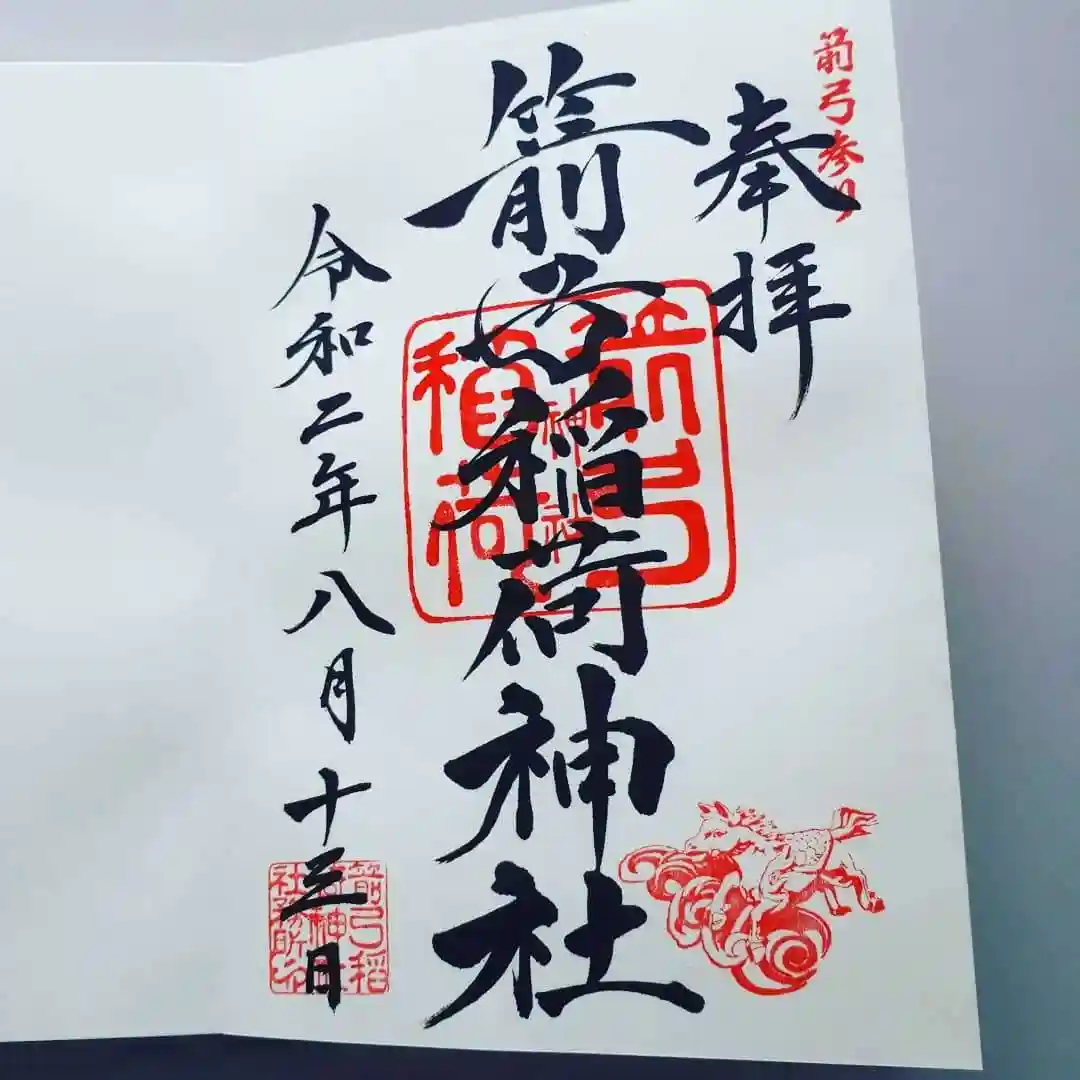 箭弓参り
奉拝
箭弓稲荷神社
箭弓
神社
稲荷
令和二年八月十三日
箭弓稲
荷神社
社務所印